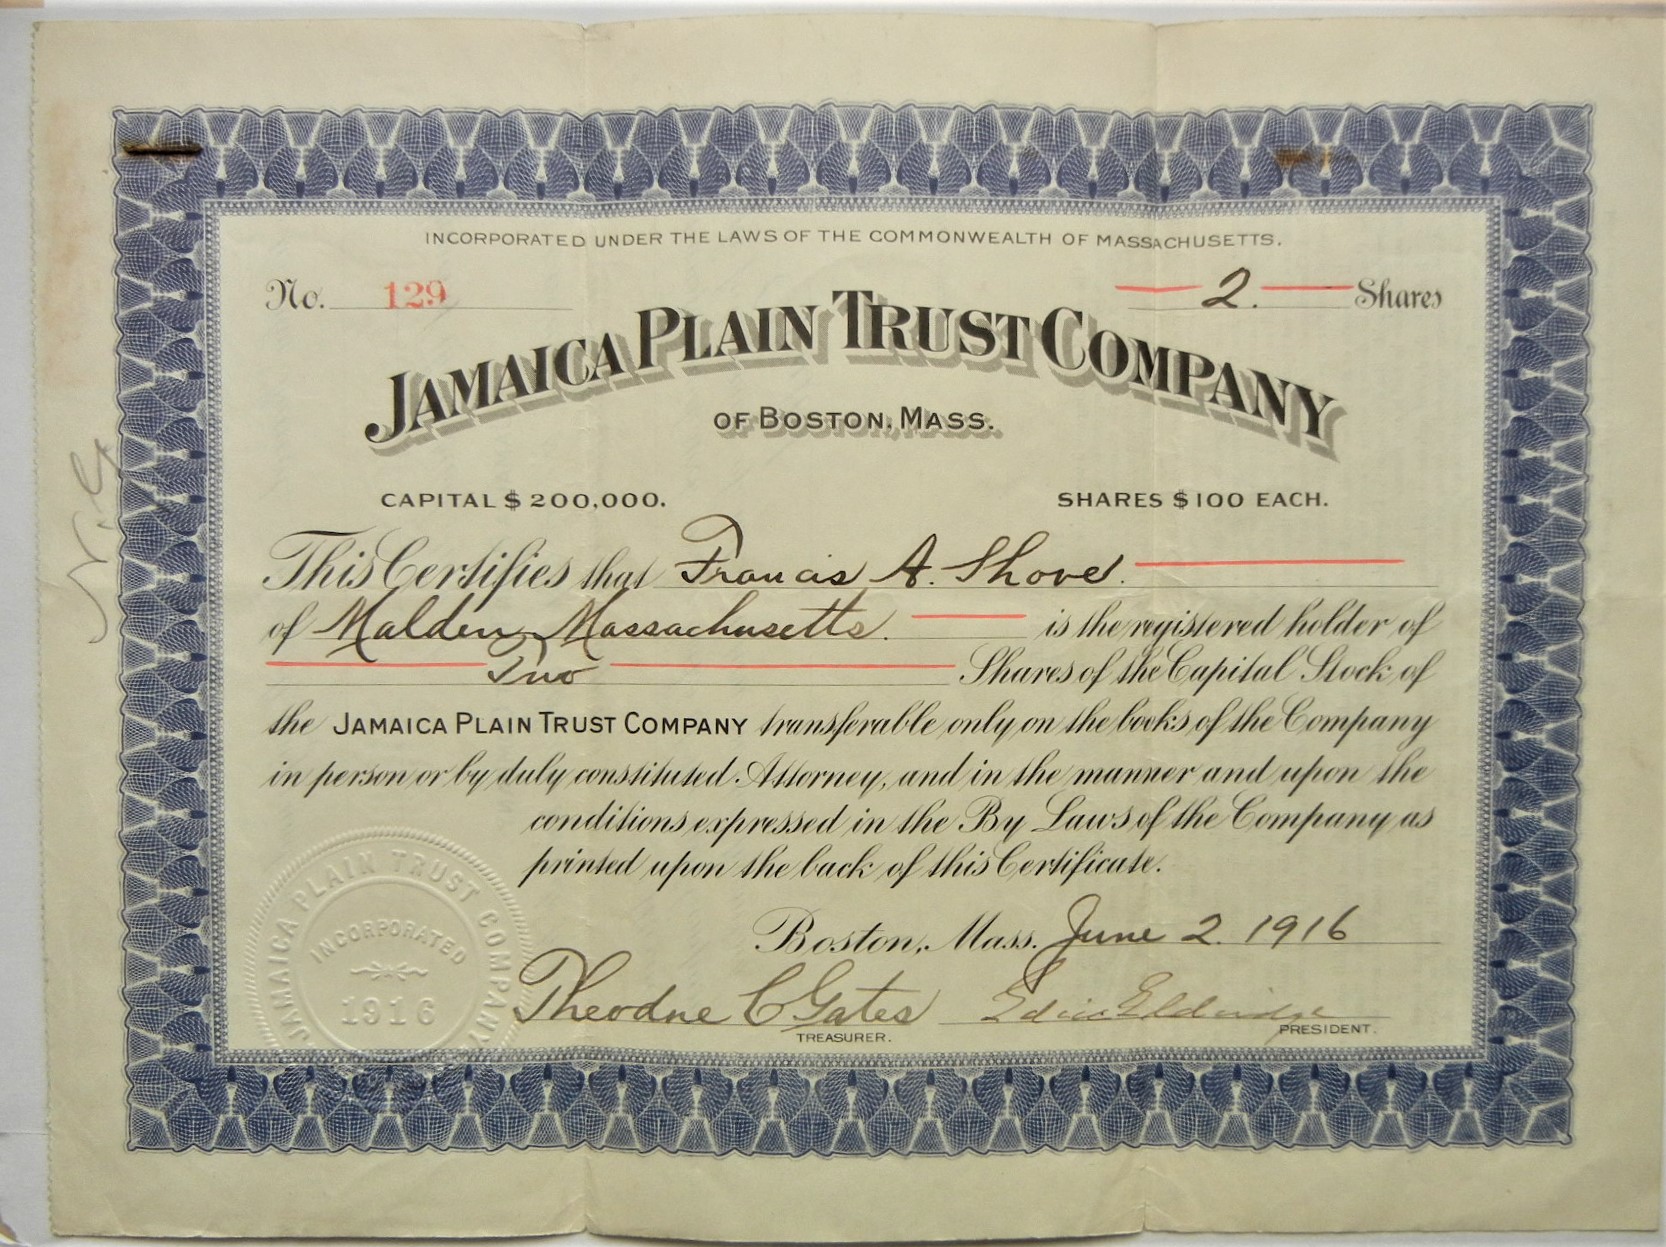 INCORPORATED UNDER THE LAWS OF THE COMMONWEALTH OF MASSACHUSETTS.
No. 129 2. Shares
JAMAICA PLAIN TRUST COMPANY
OF BOSTON, MASS.
CAPITAL $200,000. SHARES $100 EACH.
This Certifies that Francis A. Shove.
of Malden, Massachusetts. is the registered holder of
Two Shares of the Capital Stock of
the JAMAICA PLAIN TRUST COMPANY transferable only on the books of the Company
in person or by duly constituted Attorney, and in the manner and upon the
conditions expressed in the By Laws of the Company as
printed upon the back of this Certificate.
Boston, Mass. June 2. 1916
Theodore C Gates Eldridge
TREASURER. PRESIDENT.
JAMAICA PLAIN TRUST COMPANY
INCORPORATED
1916
N.G